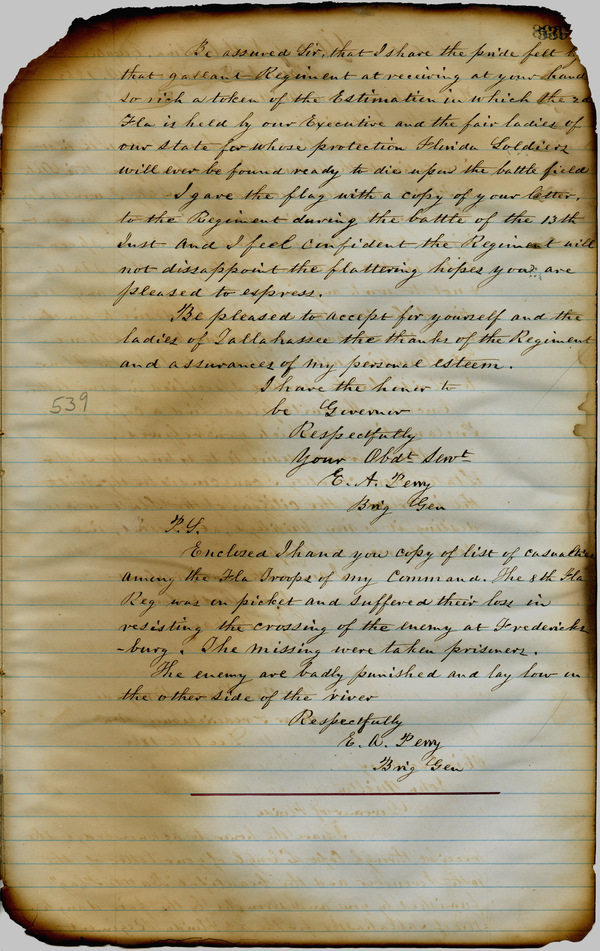 Be assured Sir, that I share the pride felt
that gallant Regiment at receiving at your hand
so rich a token of the Estimation in which the 2d
Fla is held by our Executive and the fair ladies of
our State for whose protection Florida Soldiers
will ever be found ready to die upon the battle field
I gave the flag with a copy of your letter,
to the Regiment during the battle of the 13th
Inst and I feel confident the Regiment will
not dissappoint the flattering hopes you are
pleased to express.
Be pleased to accept for yourself and the
ladies of Tallahassee the thanks of the Regiment
and assurances of my personal esteem.
I have the honor to
539
be Governor
Respectfully
Your Obdt Servt
E. A. Perry
Brig Gen
P.S.
Enclosed I hand you copy of list of casualties
among the Fla Troops of my Command. The 8th Fla
Reg was on picket and suffered their loss in
resisting the crossing of the enemy at Fredericks
-burg. The missing were taken prisoners.
The enemy are badly punished and lay low on
the other side of the river
Respectfully
E. A. Perry
Brig Gen